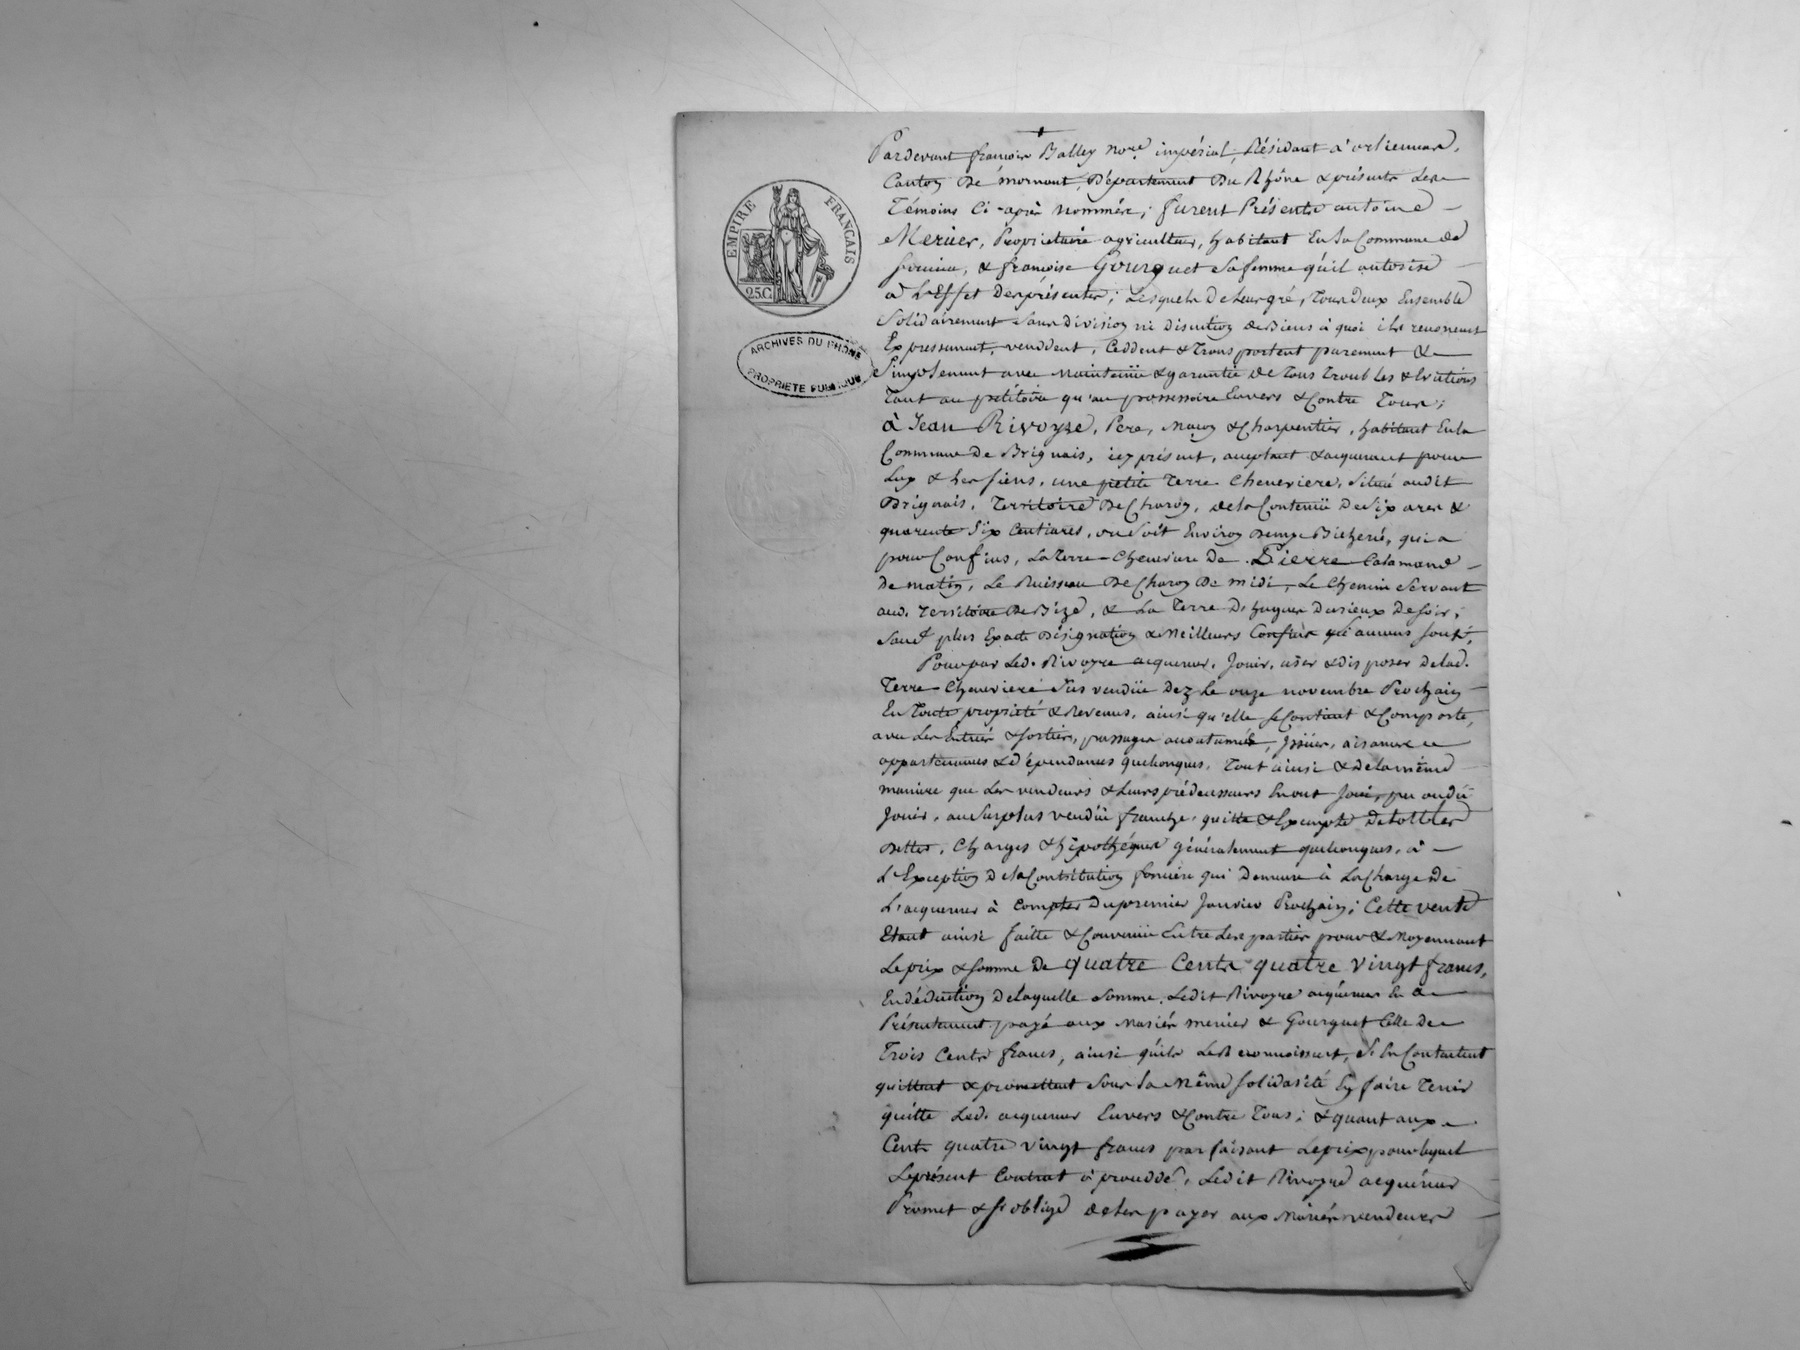 EMPIRE FRANÇAIS
25C.
ARCHIVES DU RHÔNE
PROPRIÉTÉ PUBLIQUE
Pardevant françois Balley No.re impérial, Résidant à orliennas,
Canton de mornant, Département Du Rhône & présents Les
Témoins Ci-après nommés; furent Présents antoine
Mercier, Propriétaire agriculteur, habitant En la Commune de
& françoise Gourguet sa femme qu'il autorise
à L'Effet des présentes; Lesquels de leur gré, Tous Deux Ensemble
Solidairement sans Division ni discution de Biens à quoi ils renoncent
Expressement, venddent, Ceddent & Transportent purement &
Simplement avec Maintenüe & garantie de Tous Troubles & Evictions
Tant au petitoire qu'au possessoire Envers & Contre Tous;
à Jean Rivoyre, Pere, Maçon & Charpentier, habitant En la
Commune de Brignais, icy présent, aceptant & acquerant pour
Luy & les siens, une petite Terre Cheneviere, Située audit
Brignais, Territoire De Charon, de la Contenüe de Six ares &
quarente Six Centiares, ou Soit Environ Demye Bicherée, qui a
pour Confins, La Terre-Cheneviere de Pierre Calamand
de matin, Le Ruisseau De Charon De midi, Le Chemin Servant
aud. Territoire De Bize, & La Terre D'hugues Durieux De soir;
Sauf plus Exacte Désignation & Meilleurs Confins
Pour par Led. Rivoyre acquereur, Jouir, user & disposer de lad.
Terre-Cheneviere Sus vendüe dez Le onze novembre Prochain
En Toute propriété & Revenus, ainsi qu'elle se Contient & Comporte,
avec Les Entrées & sorties, passages acoutumés, Issües, aisances
appartenances & dépendances quelconques, Tout ainsi & de la même
maniere que Les vendeurs & Leurs prédecesseurs En ont Joui, pu ou dü
Jouir, au surplus vendüe franche, quitte & Exempte de toutes
Dettes, Charges & hipothéques généralement quelconques, à
L'Exception de la Contribution fonciere qui Demeure à La Charge de
L'acquereur à Compter Du premier Janvier Prochain; Cette vente
Etant ainsi faitte & Convenüe Entre Les parties pour & Moyennant
Le prix & somme De quatre Cents quatre vingt francs,
En déduction de laquelle Somme, Ledit Rivoyre acquéreur En a
Présentement payé aux Mariés Mercier & Gourguet Celle de
Trois Cents francs, ainsi qu'ils Le Reconnoissent, s'En Contentent
quittent & promettent Sous La Même solidarité En faire Tenir
quitte Led. acquereur Envers & Contre Tous; & quant aux
Cents quatre vingt francs parfaisant Le prix pour lequel
Le présent Contrat à proceddé, Ledit Rivoyre acquéreur
Promet & s'oblige de les payer aux Mariés vendeurs